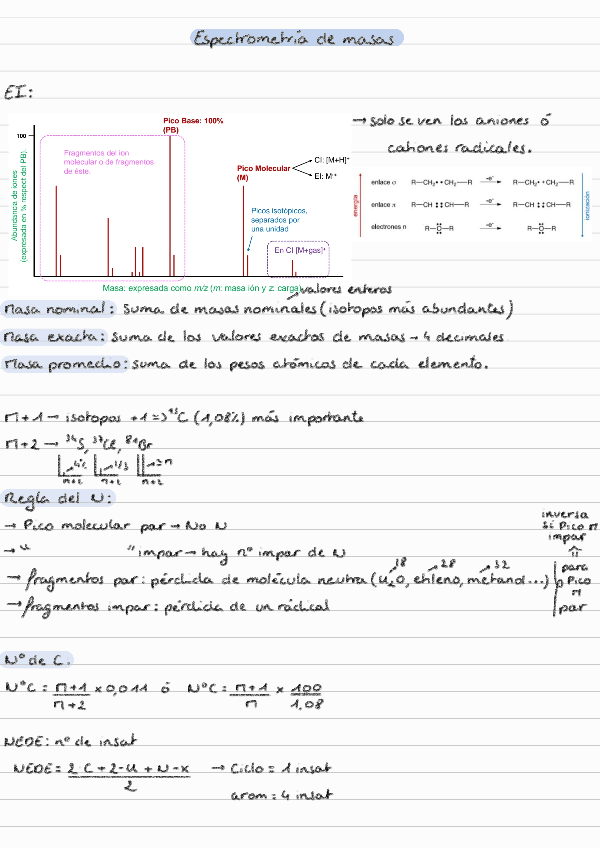 Espectrometría de masas
EI:
Pico Base: 100%
(PB)
100
Fragmentos del ion
molecular o de fragmentos
de éste.
Pico Molecular
(M)
CI: [M+H]+
EI: M·+
Picos isotópicos,
separados por
una unidad
En CI [M+gas]+
Abundancia de iones
(expresada en % respect del PB).
Masa: expresada como m/z (m: masa ión y z: carga)
→ solo se ven los aniones ó
cationes radicales.
energía
enlace σ R—CH₂··CH₂—R -e⁻ R—CH₂·CH₂—R
enlace π R—CH::CH—R -e⁻ R—CH::CH—R
electrones n R—O—R -e⁻ R—O—R
ionización
valores enteros
Masa nominal: Suma de masas nominales (isotopos más abundantes)
Masa exacta: suma de los valores exactos de masas → 4 decimales
Masa promedio: suma de los pesos atómicos de cada elemento.
M+1 → isotopos +1 => ¹³C (1,08%) más importante
M+2 → ³⁴S, ³⁷Cl, ⁸¹Br
4% 1/3 = M
M+2 M+2 M+2
Regla del N:
→ Pico molecular par → No N
→ " " impar → hay nº impar de N
→ fragmentos par: pérdida de molécula neutra (H₂O, etileno, metanol...)
18 28 32
→ fragmentos impar: pérdida de un radical
inversa
si Pico M
impar
para
Pico
M
par
Nº de C.
NºC = M+1/M+2 × 0,011 ó NºC = M+1/M × 100/1,08
NEDE: nº de insat
NEDE = 2·C+2-H+N-X/2 → Ciclo = 1 insat
arom = 4 insat